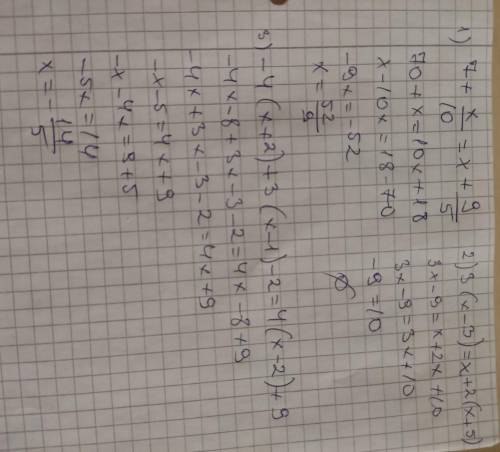 1) 7 + x/10 = x + 9/5
70 + x = 10x + 18
x - 10x = 18 - 70
-9x = -52
x = 52/9
2) 3(x-3) = x + 2(x+5)
3x - 9 = x + 2x + 10
3x - 9 = 3x + 10
-9 = 10
∅
3) -4(x+2) + 3(x-1) - 2 = 4(x-2) + 9
-4x - 8 + 3x - 3 - 2 = 4x - 8 + 9
-4x + 3x - 3 - 2 = 4x + 9
-x - 5 = 4x + 9
-x - 4x = 9 + 5
-5x = 14
x = - 14/5